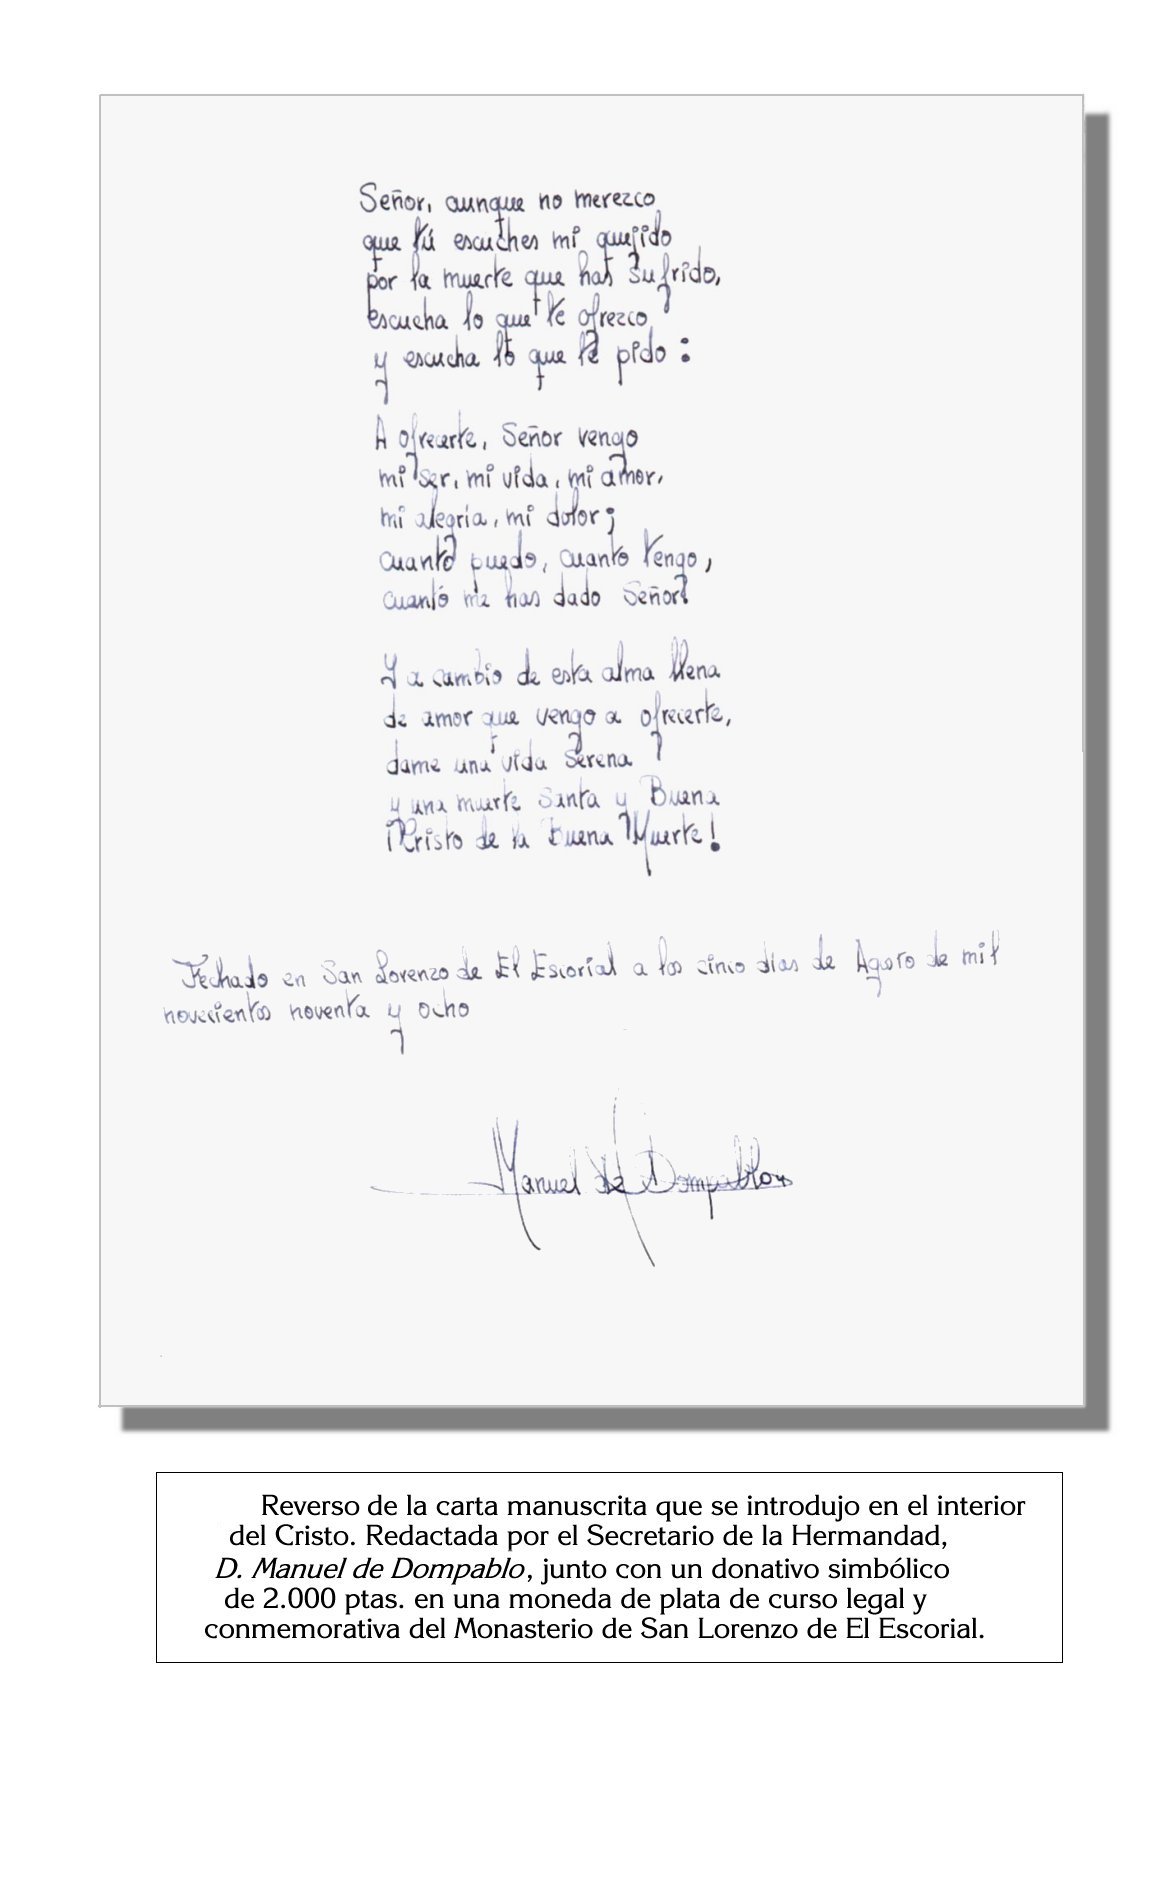 Señor, aunque no merezco
que tú escuches mi quejido
por la muerte que has sufrido,
escucha lo que te ofrezco
y escucha lo que te pido:
A ofrecerte, Señor vengo
mi ser, mi vida, mi amor,
mi alegría, mi dolor;
cuanto puedo, cuanto tengo,
cuanto me has dado Señor.
Y a cambio de esta alma llena
de amor que vengo a ofrecerte,
dame una vida Serena
y una muerte Santa y Buena
¡Cristo de la Buena Muerte!
Fechado en San Lorenzo de El Escorial a los cinco días de Agosto de mil
novecientos noventa y ocho
Manuel de Dompablo
Reverso de la carta manuscrita que se introdujo en el interior
del Cristo. Redactada por el Secretario de la Hermandad,
D. Manuel de Dompablo, junto con un donativo simbólico
de 2.000 ptas. en una moneda de plata de curso legal y
conmemorativa del Monasterio de San Lorenzo de El Escorial.